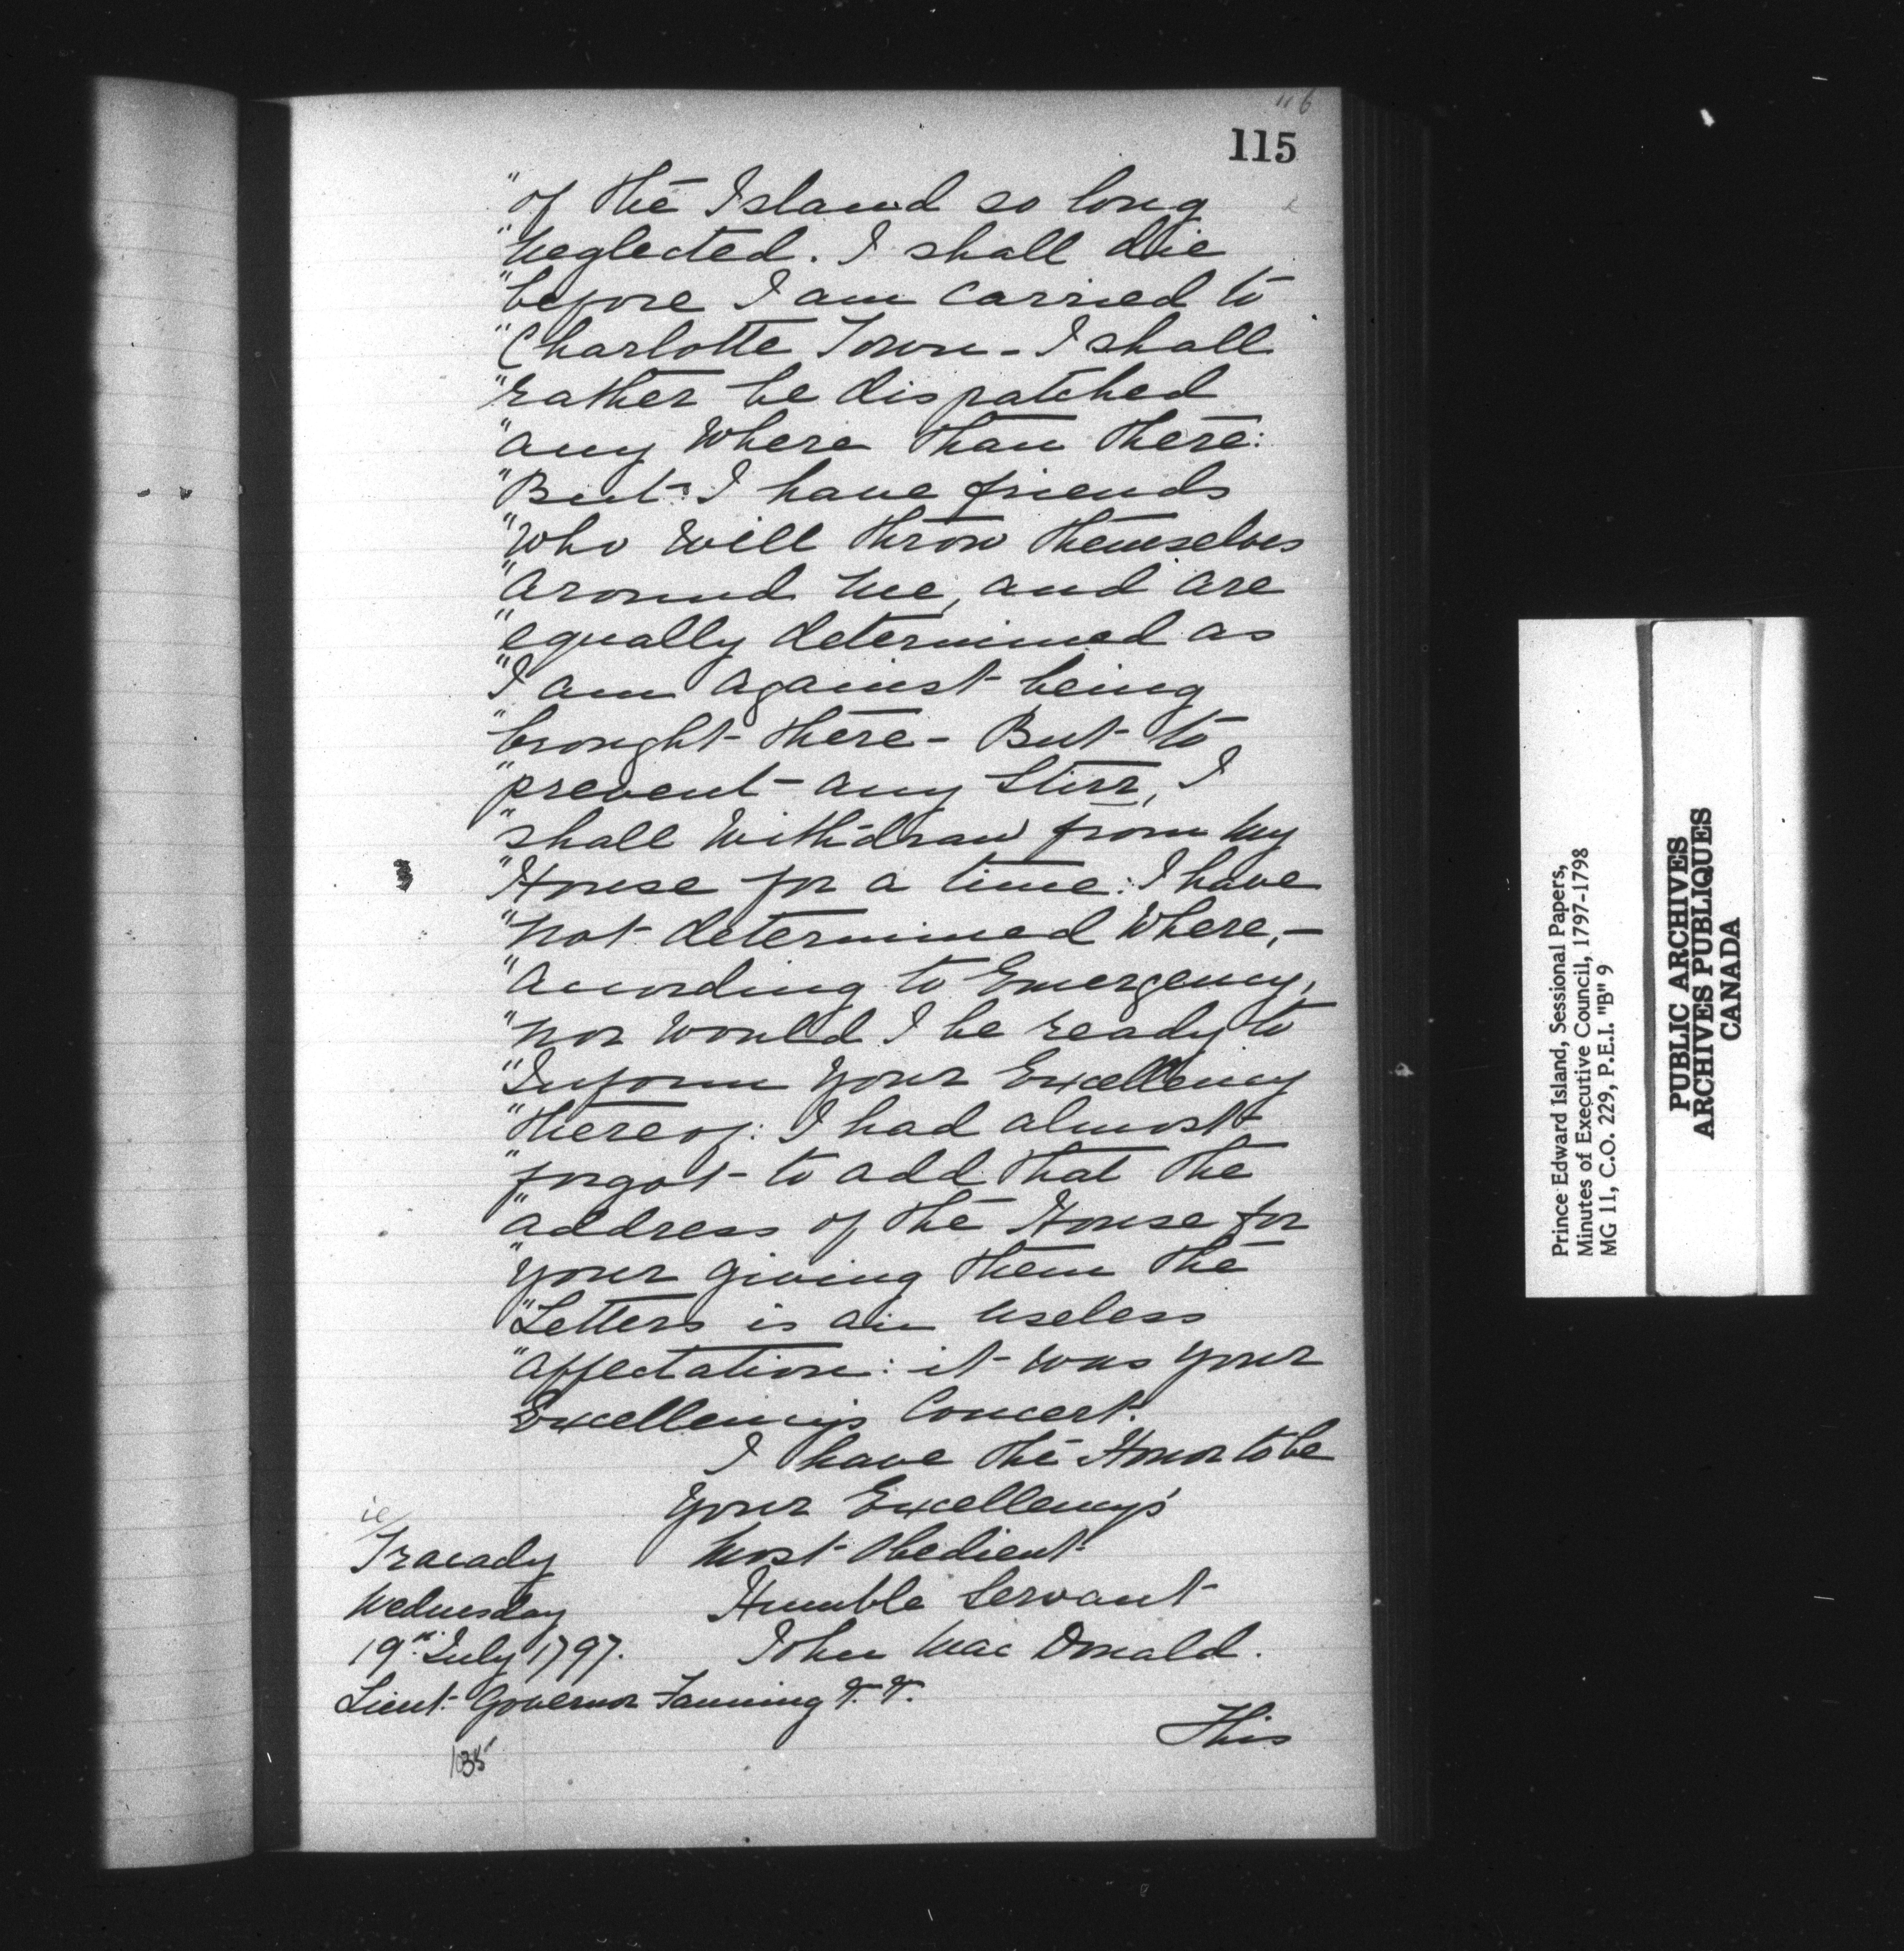 116
115
"of the Island so long
"neglected. I shall die
"before I am carried to
"Charlotte Town - I shall
"rather be dispatched
"any where than there:
"But I have friends
"who will throw themselves
"around me, and are
"equally determined as
"I am against being
"brought there - But to
"prevent any Stirr, I
"shall withdraw from my
"House for a time: I have
"not determined where, -
"according to Emergency,
"nor would I be ready to
"Inform your Excellency
"thereof: I had almost
"forgot to add that the
"address of the House for
"your giving them the
"Letters is an useless
"affectation: it was your
Excellency's Concert.
I have the Honor to be
Your Excellency's
ie/
Tracady Most Obedient
Wednesday Humble Servant
19th July 1797. John Mac Donald.
Lieut. Governor Fanning &. &.
This
Prince Edward Island, Sessional Papers,
Minutes of Executive Council, 1797-1798
MG 11, C.O. 229, P.E.I. "B" 9
PUBLIC ARCHIVES
ARCHIVES PUBLIQUES
CANADA